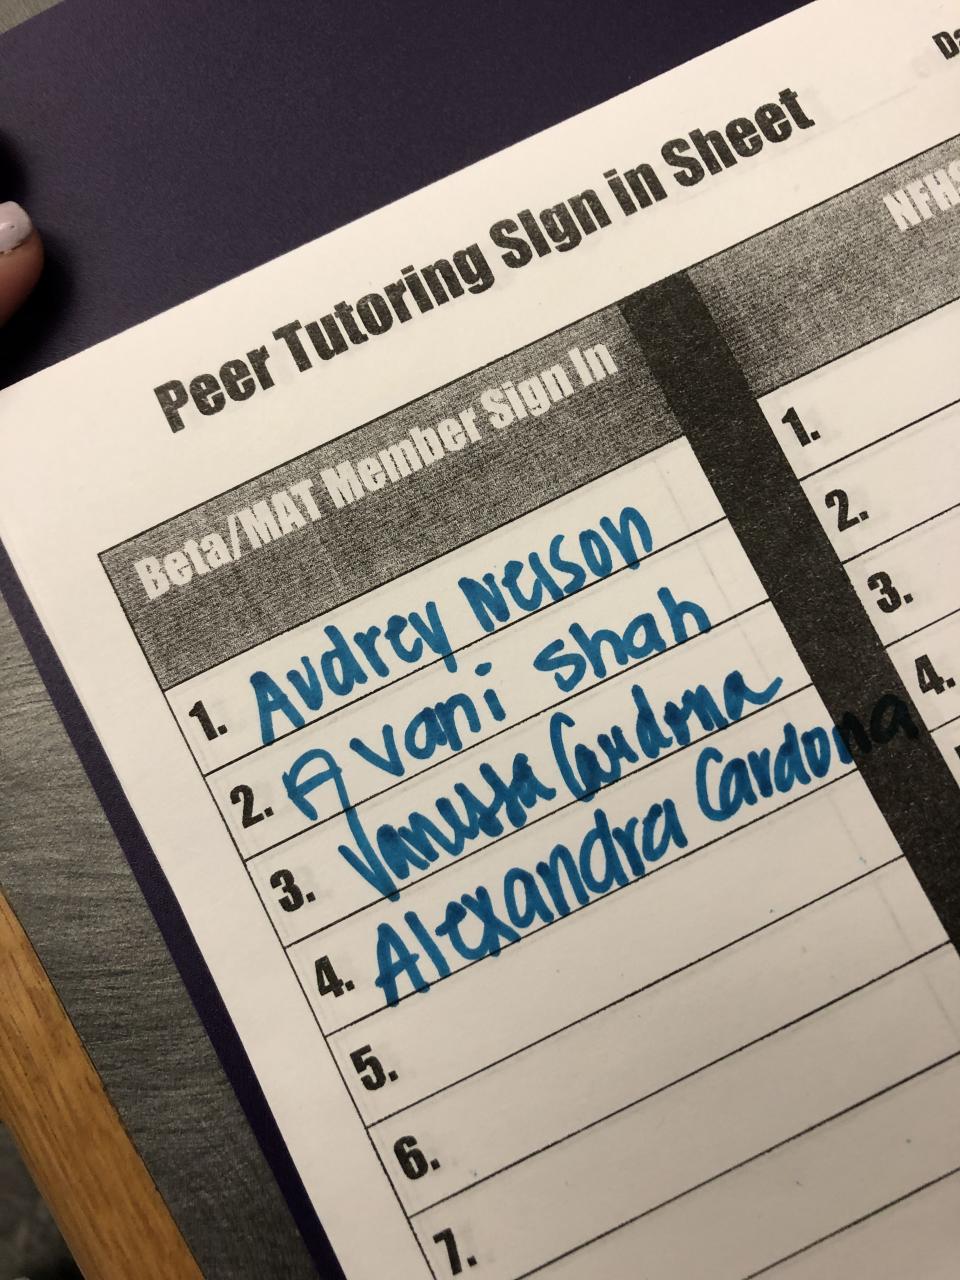 Da
Peer Tutoring SIgn in Sheet
Beta/MAT Member Sign In
1. Audrey Nelson
2. Avani Shah
3. Vanessa Cardona
4. Alexandra Cardona
5.
6.
7.
NFHS
1.
2.
3.
4.